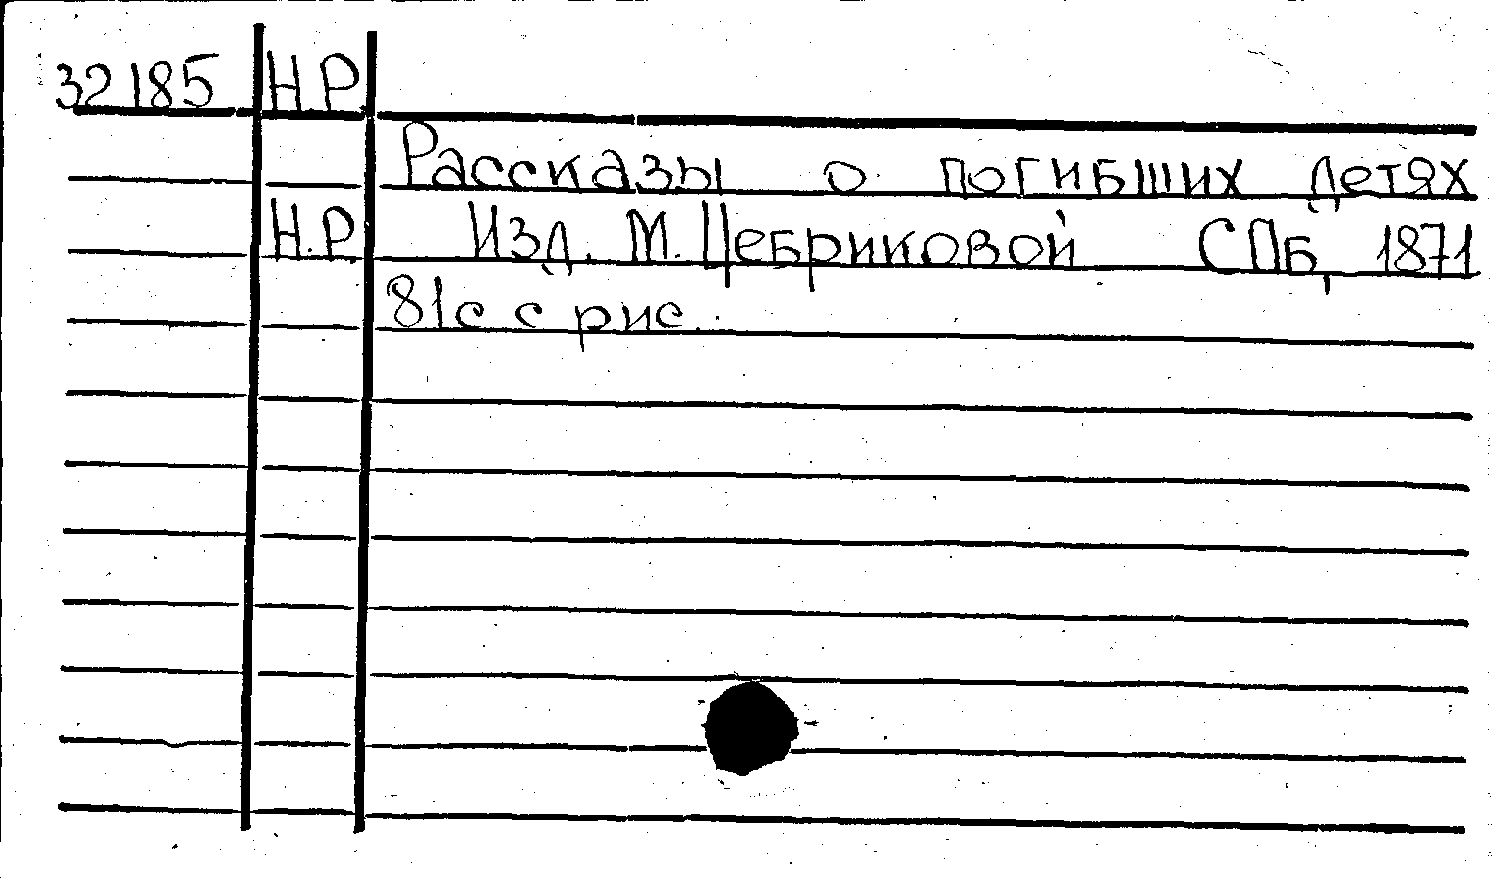 32185 Н.Р
Рассказы о погибших детях
Н.Р. Изд. М. Цебриковой СПб, 1871
81с с рис.